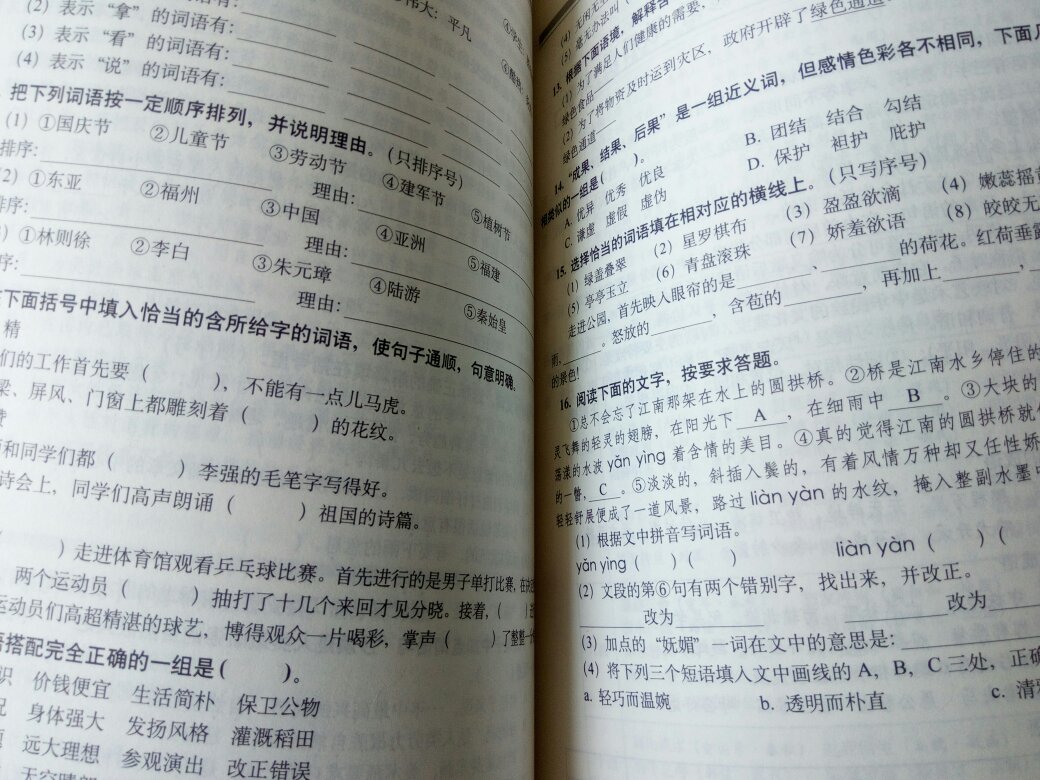 伟大：平凡
(2) 表示“拿”的词语有：
(3) 表示“看”的词语有：
(4) 表示“说”的词语有：
把下列词语按一定顺序排列，并说明理由。(只排序号)
(1) ①国庆节 ②儿童节 ③劳动节 ④建军节 ⑤植树节
排序： 理由：
2) ①东亚 ②福州 ③中国 ④亚洲 ⑤福建
排序： 理由：
①林则徐 ②李白 ③朱元璋 ④陆游 ⑤秦始皇
序： 理由：
下面括号中填入恰当的含所给字的词语，使句子通顺，句意明确。
精
们的工作首先要（ ），不能有一点儿马虎。
梁、屏风、门窗上都雕刻着（ ）的花纹。
赞
和同学们都（ ）李强的毛笔字写得好。
诗会上，同学们高声朗诵（ ）祖国的诗篇。
）走进体育馆观看乒乓球比赛。首先进行的是男子单打比赛，在决
两个运动员（ ）抽打了十几个来回才见分晓。接着，（ ）
运动员们高超精湛的球艺，博得观众一片喝彩，掌声（ ）了整整一
搭配完全正确的一组是( )。
识 价钱便宜 生活简朴 保卫公物
身体强大 发扬风格 灌溉稻田
远大理想 参观演出 改正错误
(5) 毫无办法叫（
13. 根据下面语境，解释含
(1) 为了满足人们健康的需要，
绿色食品
(2) 为了将物资及时运到灾区，政府开辟了绿色通道
绿色通道
14. “成果、结果、后果”是一组近义词，但感情色彩各不相同，下面几
相类似的一组是( )。
A. 优异 优秀 优良 B. 团结 结合 勾结
C. 谦虚 虚假 虚伪 D. 保护 袒护 庇护
15. 选择恰当的词语填在相对应的横线上。(只写序号)
(1) 绿盖叠翠 (2) 星罗棋布 (3) 盈盈欲滴 (4) 嫩蕊摇
(5) 亭亭玉立 (6) 青盘滚珠 (7) 娇羞欲语 (8) 皎皎无
走进公园，首先映入眼帘的是 、 的荷花。红荷垂露
雨， 。怒放的 ，含苞的 ，再加上 ，
的景色！
16. 阅读下面的文字，按要求答题。
①总不会忘了江南那架在水上的圆拱桥。②桥是江南水乡停住的
灵飞舞的轻灵的翅膀，在阳光下 A ，在细雨中 B 。③大块的
荡漾的水波 yǎn yìng 着含情的美目。④真的觉得江南的圆拱桥就
的一瞥， C 。⑤淡淡的，斜插入鬓的，有着风情万种却又任性娇
轻轻舒展便成了一道风景，路过 liàn yàn 的水纹，掩入整副水墨
(1) 根据文中拼音写词语。
yǎn yìng ( ) ( ) liàn yàn ( ) (
(2) 文段的第⑥句有两个错别字，找出来，并改正。
改为 改为
(3) 加点的“妩媚”一词在文中的意思是：
(4) 将下列三个短语填入文中画线的 A，B，C 三处，正确
a. 轻巧而温婉 b. 透明而朴直 c. 清